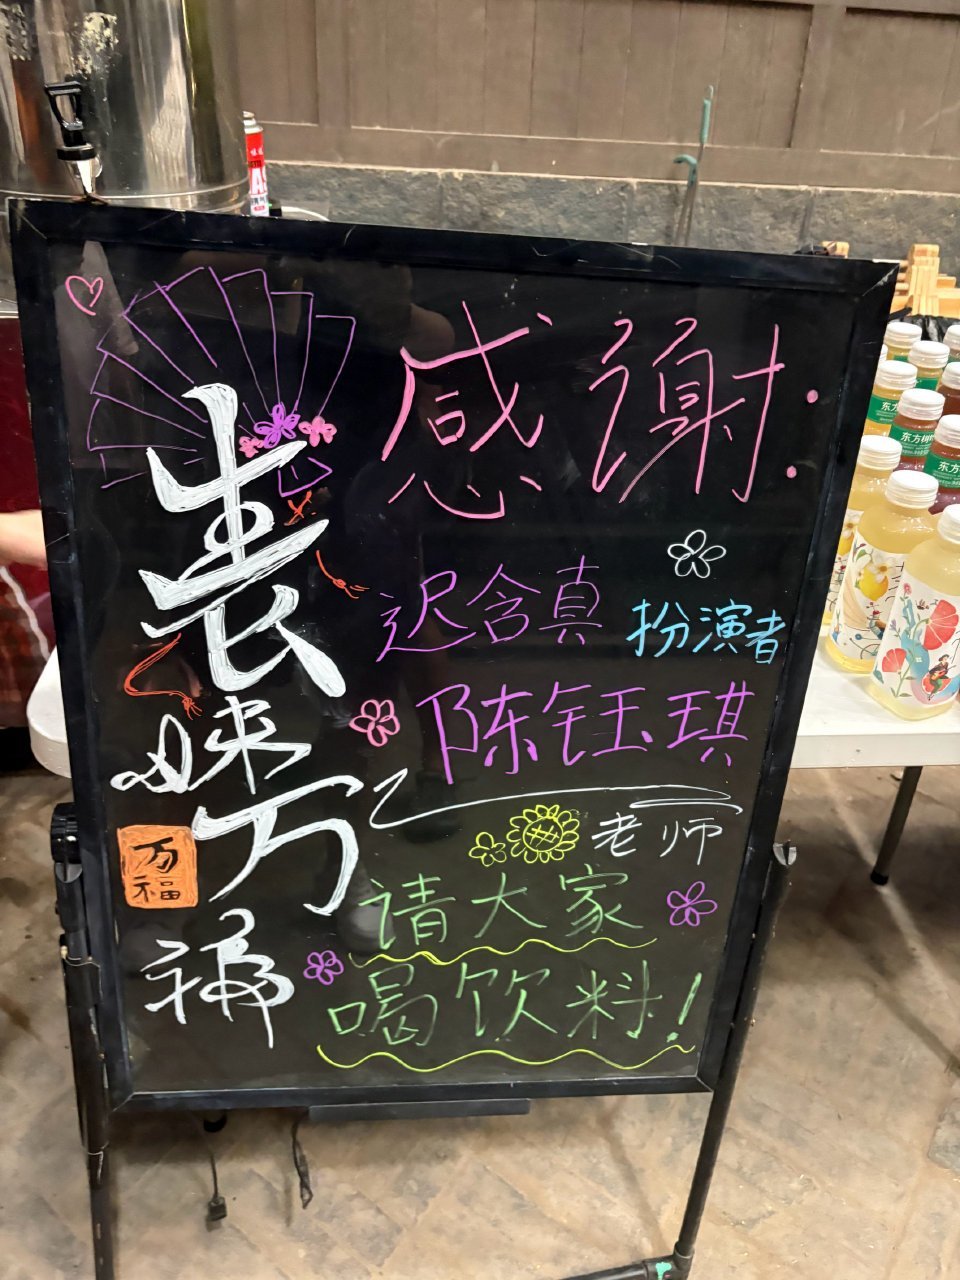 感谢:
迟含真 扮演者
陈钰琪
老师
请大家
喝饮料!
袭
妹
万
福
万福
东方树叶